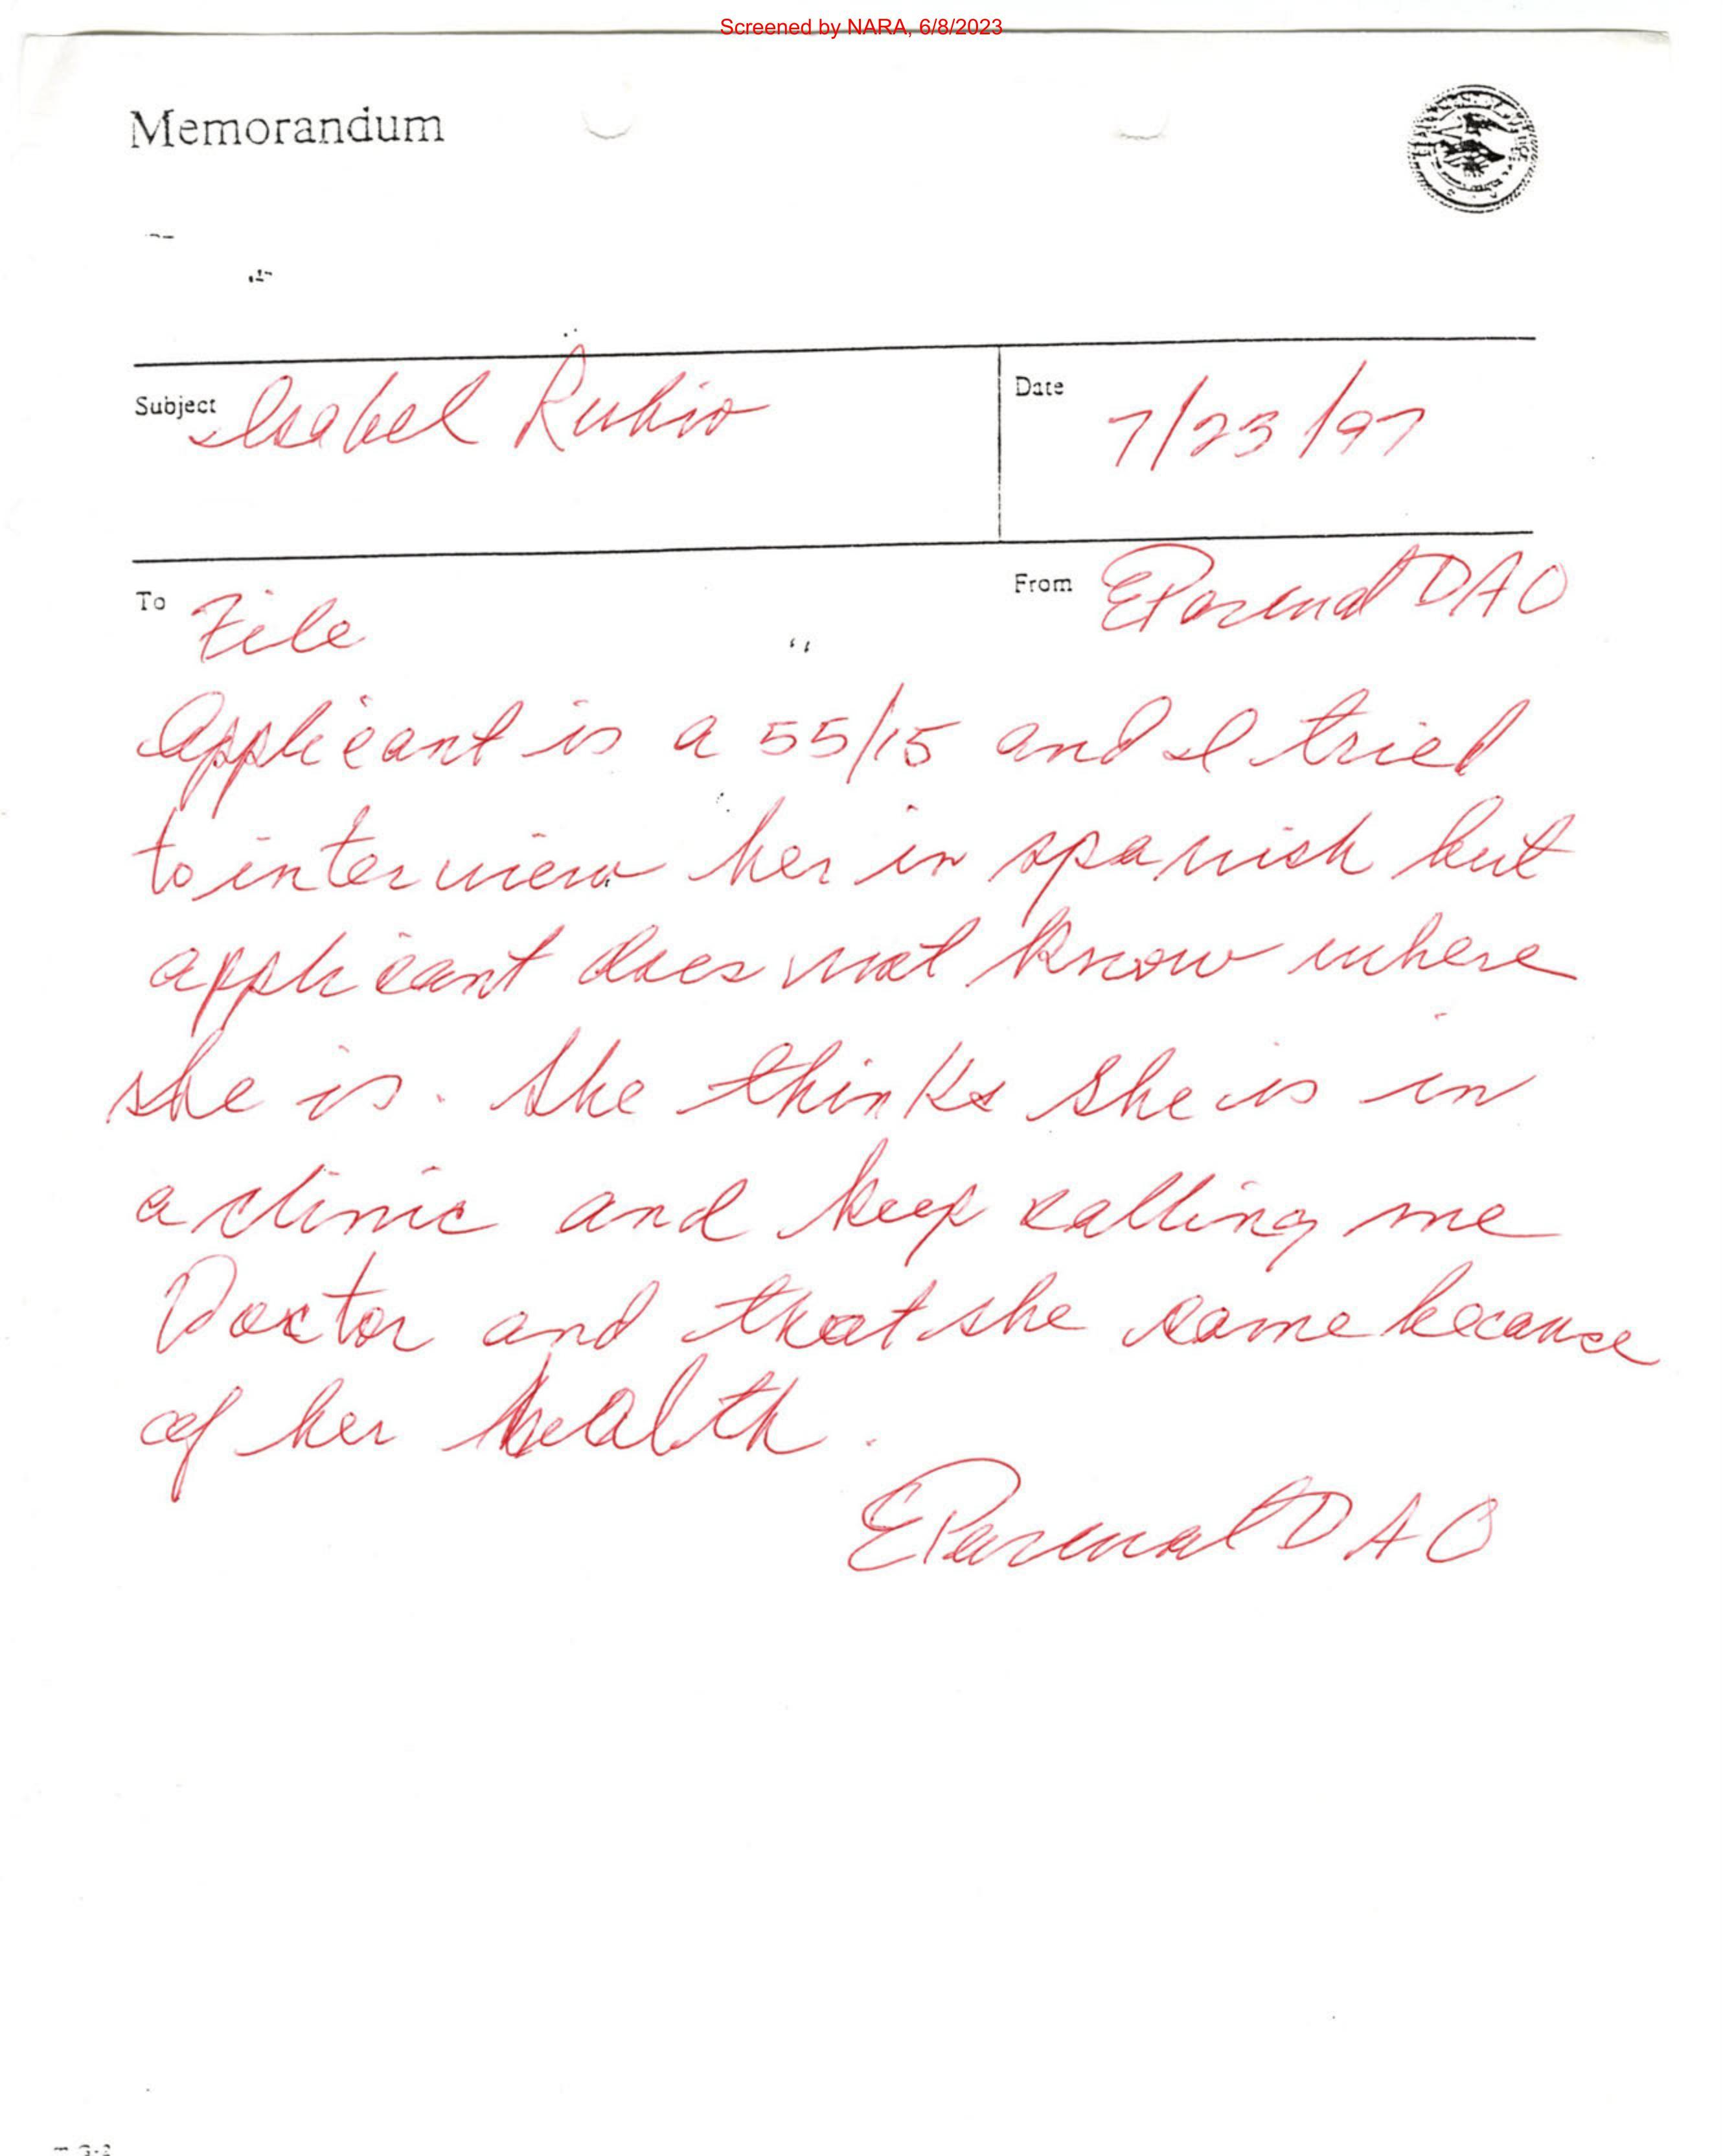 Screened by NARA, 6/8/2023
Memorandum
Subject Isabel Rubio
Date 7/23/97
To File
From DAO
Applicant is a 55/15 and I tried
to interview her in spanish but
applicant does not know where
she is. She thinks she is in
a clinic and keep calling me
Doctor and that she came because
of her health.
DAO